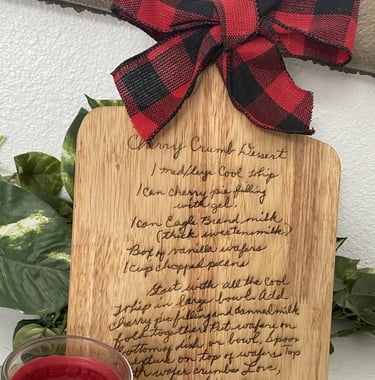 Cherry Crumb Dessert
1 med/large Cool Whip
1 can cherry pie filling
with gel.
1 can Eagle Brand milk
(thick sweetensmilk)
Box of vanilla wafers
1 cup chopped pecans
Start with all the Cool
Whip in large bowl. Add
cherry pie filling and canned milk
fold together. Put wafers on
bottom of dish or bowl, spoon
mixture on top of wafers Top
with wafer crumbs Love,